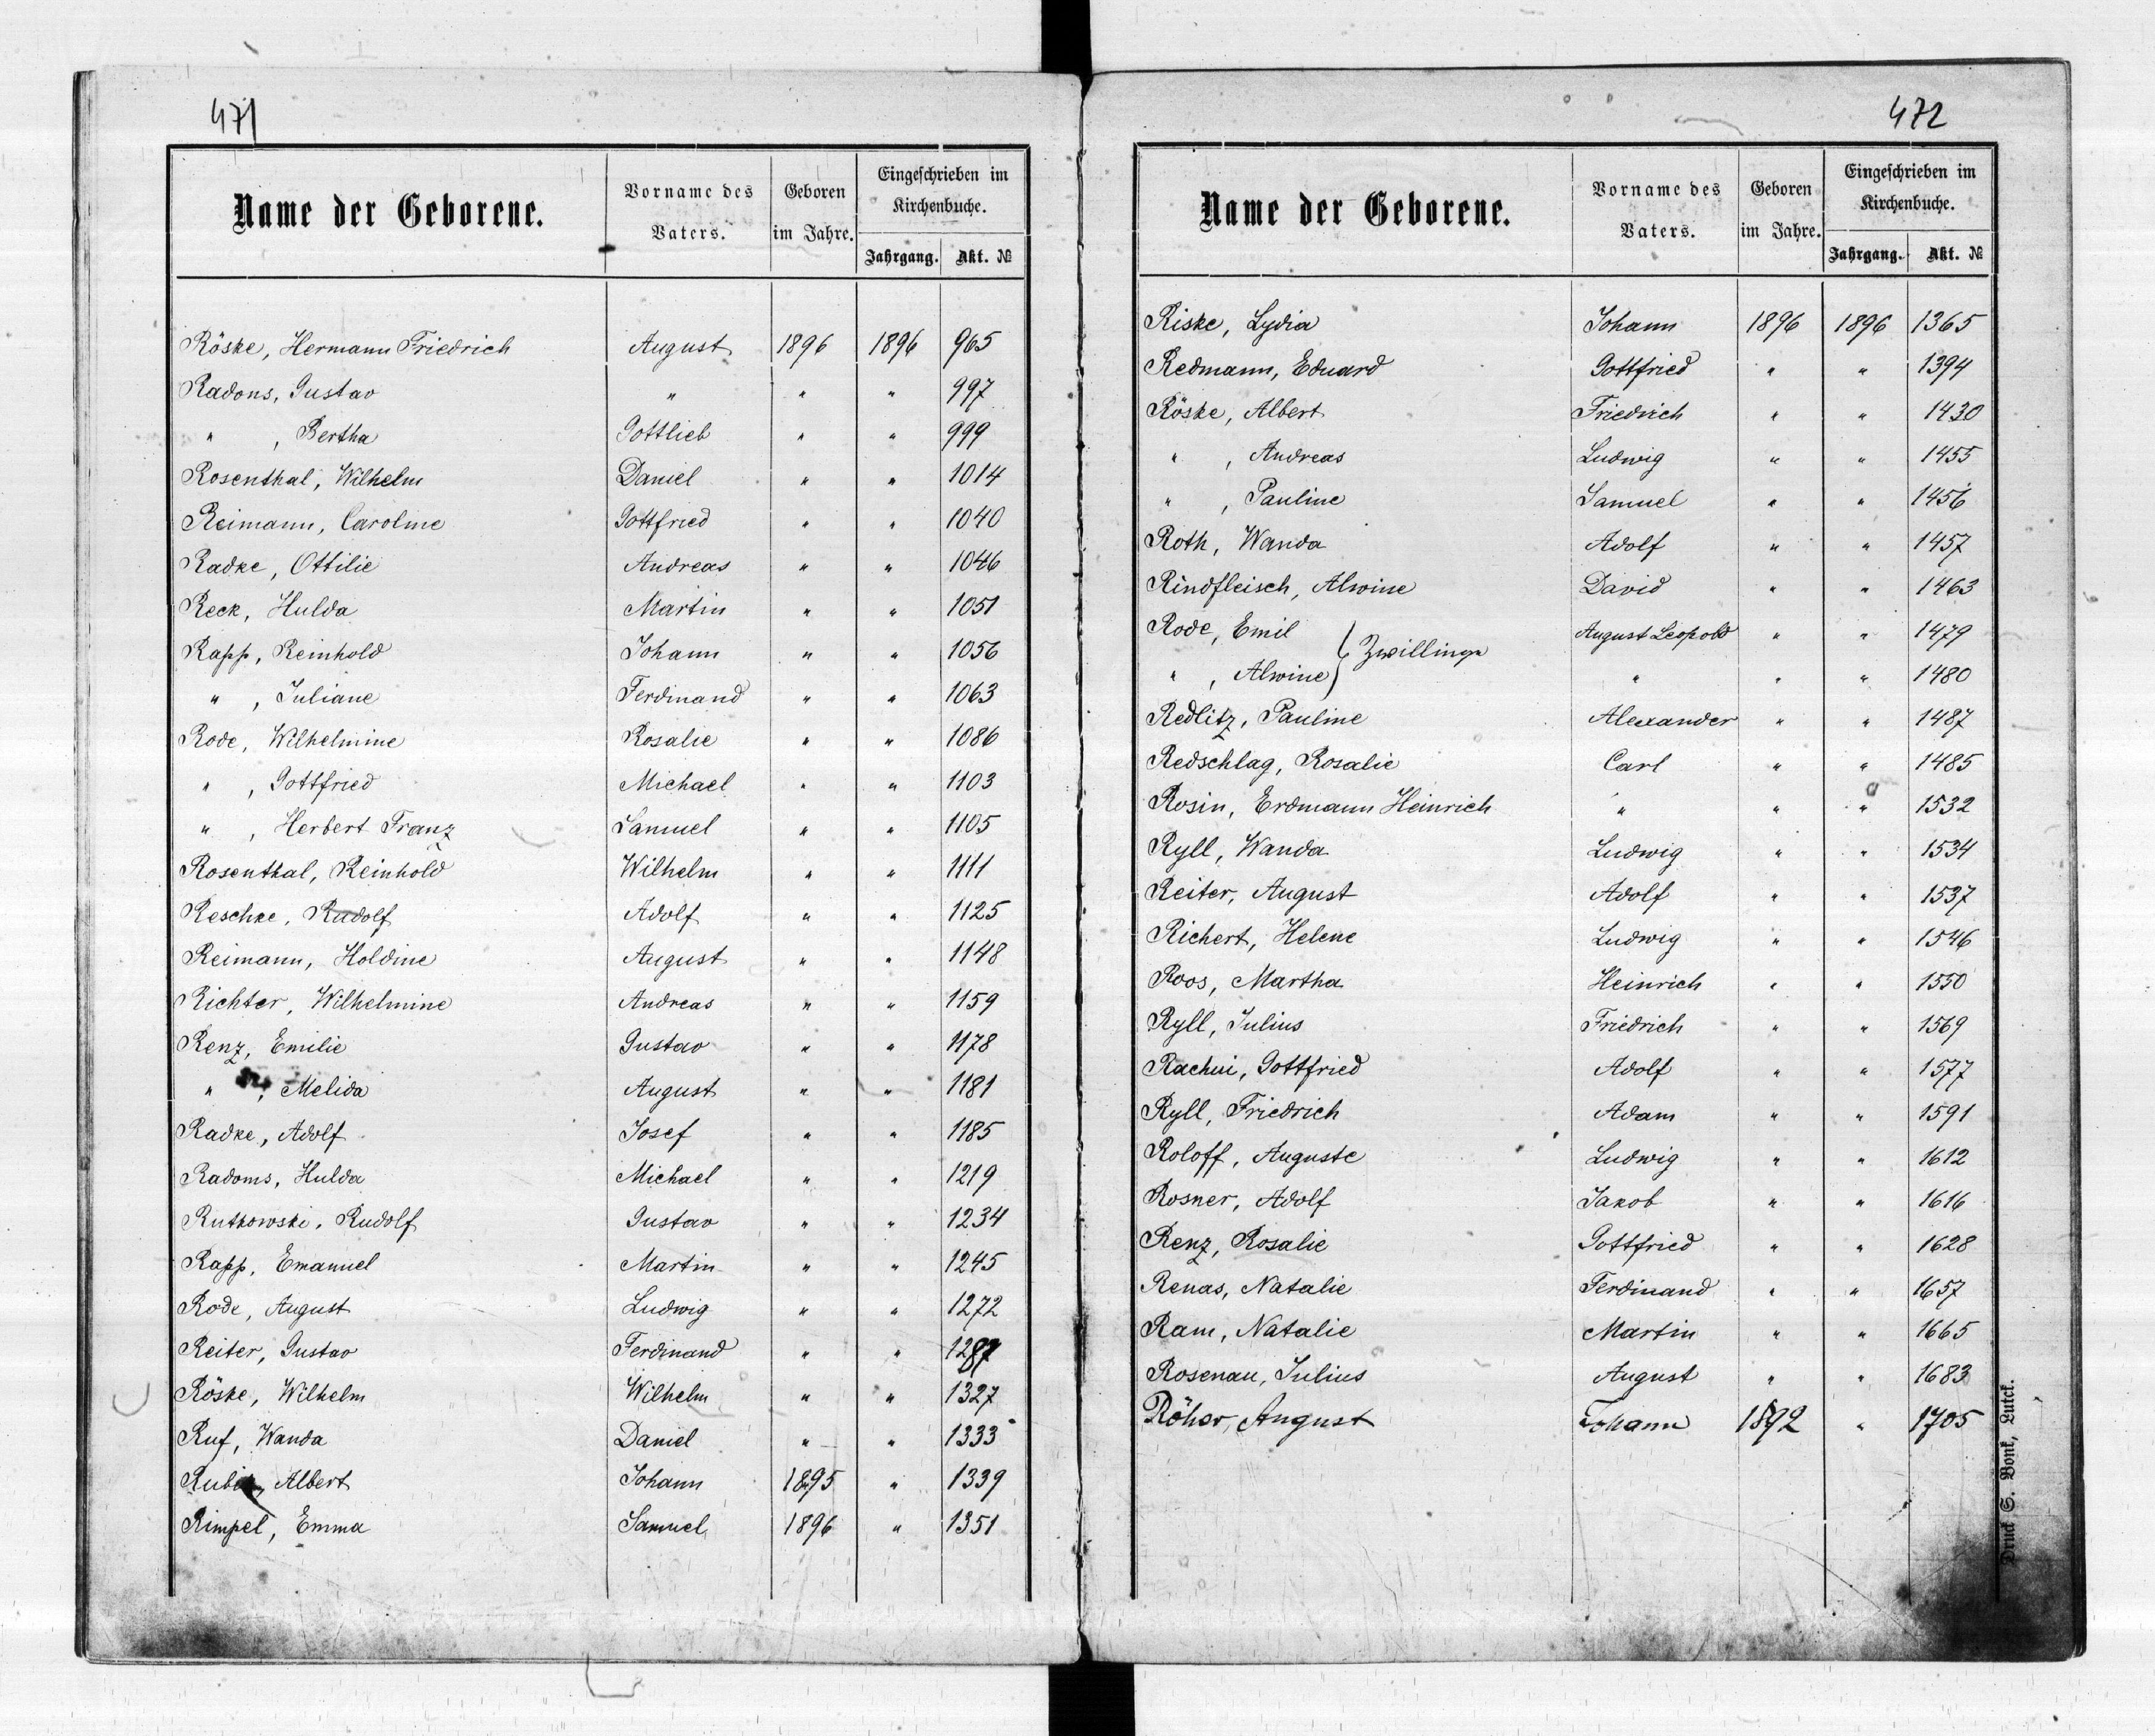 471
Name der Geborene. Vorname des Vaters. Geboren im Jahre. Eingeschrieben im Kirchenbuche. Jahrgang. Akt. №
Röske, Hermann Friedrich August 1896 1896 965
Radons, Gustav " " " 997
" , Bertha Gottlieb " " 999
Rosenthal, Wilhelm Daniel " " 1014
Reimann, Caroline Gottfried " " 1040
Radke, Ottilie Andreas " " 1046
Reck, Hulda Martin " " 1051
Rapp, Reinhold Johann " " 1056
" , Juliane Ferdinand " " 1063
Rode, Wilhelmine Rosalie " " 1086
" , Gottfried Michael " " 1103
" , Herbert Franz Samuel " " 1105
Rosenthal, Reinhold Wilhelm " " 1111
Reschke, Rudolf Adolf " " 1125
Reimann, Holdine August " " 1148
Richter, Wilhelmine Andreas " " 1159
Renz, Emilie Gustav " " 1178
" , Melida August " " 1181
Radke, Adolf Josef " " 1185
Radoms, Hulda Michael " " 1219
Rutkowski, Rudolf Gustav " " 1234
Rapp, Emanuel Martin " " 1245
Rode, August Ludwig " " 1272
Reiter, Gustav Ferdinand " "
Röske, Wilhelm Wilhelm " " 1327
Ruf, Wanda Daniel " " 1333
Albert Johann 1895 " 1339
Rimpel, Emma Samuel 1896 " 1351
472
Name der Geborene. Vorname des Vaters. Geboren im Jahre. Eingeschrieben im Kirchenbuche. Jahrgang. Akt. №
Riske, Lydia Johann 1896 1896 1365
Redmann, Eduard Gottfried " " 1394
Röske, Albert Friedrich " " 1430
" , Andreas Ludwig " " 1455
" , Pauline Samuel " " 1456
Roth, Wanda Adolf " " 1457
Rindfleisch, Alwine David " " 1463
Rode, Emil } Zwillinge August Leopold " " 1479
" , Alwine } " " " 1480
Redlitz, Pauline Alexander " " 1487
Redschlag, Rosalie Carl " " 1485
Rosin, Erdmann Heinrich " " " 1532
Ryll, Wanda Ludwig " " 1534
Reiter, August Adolf " " 1537
Richert, Helene Ludwig " " 1546
Roos, Martha Heinrich " " 1550
Ryll, Julius Friedrich " " 1569
Rachui, Gottfried Adolf " " 1577
Ryll, Friedrich Adam " " 1591
Roloff, Auguste Ludwig " " 1612
Rosner, Adolf Jakob " " 1616
Renz, Rosalie Gottfried " " 1628
Renas, Natalie Ferdinand " " 1657
Ram, Natalie Martin " " 1665
Rosenau, Julius August " " 1683
Röher, August Johann 1892 " 1705
Druck S. Bonk, Lutck.